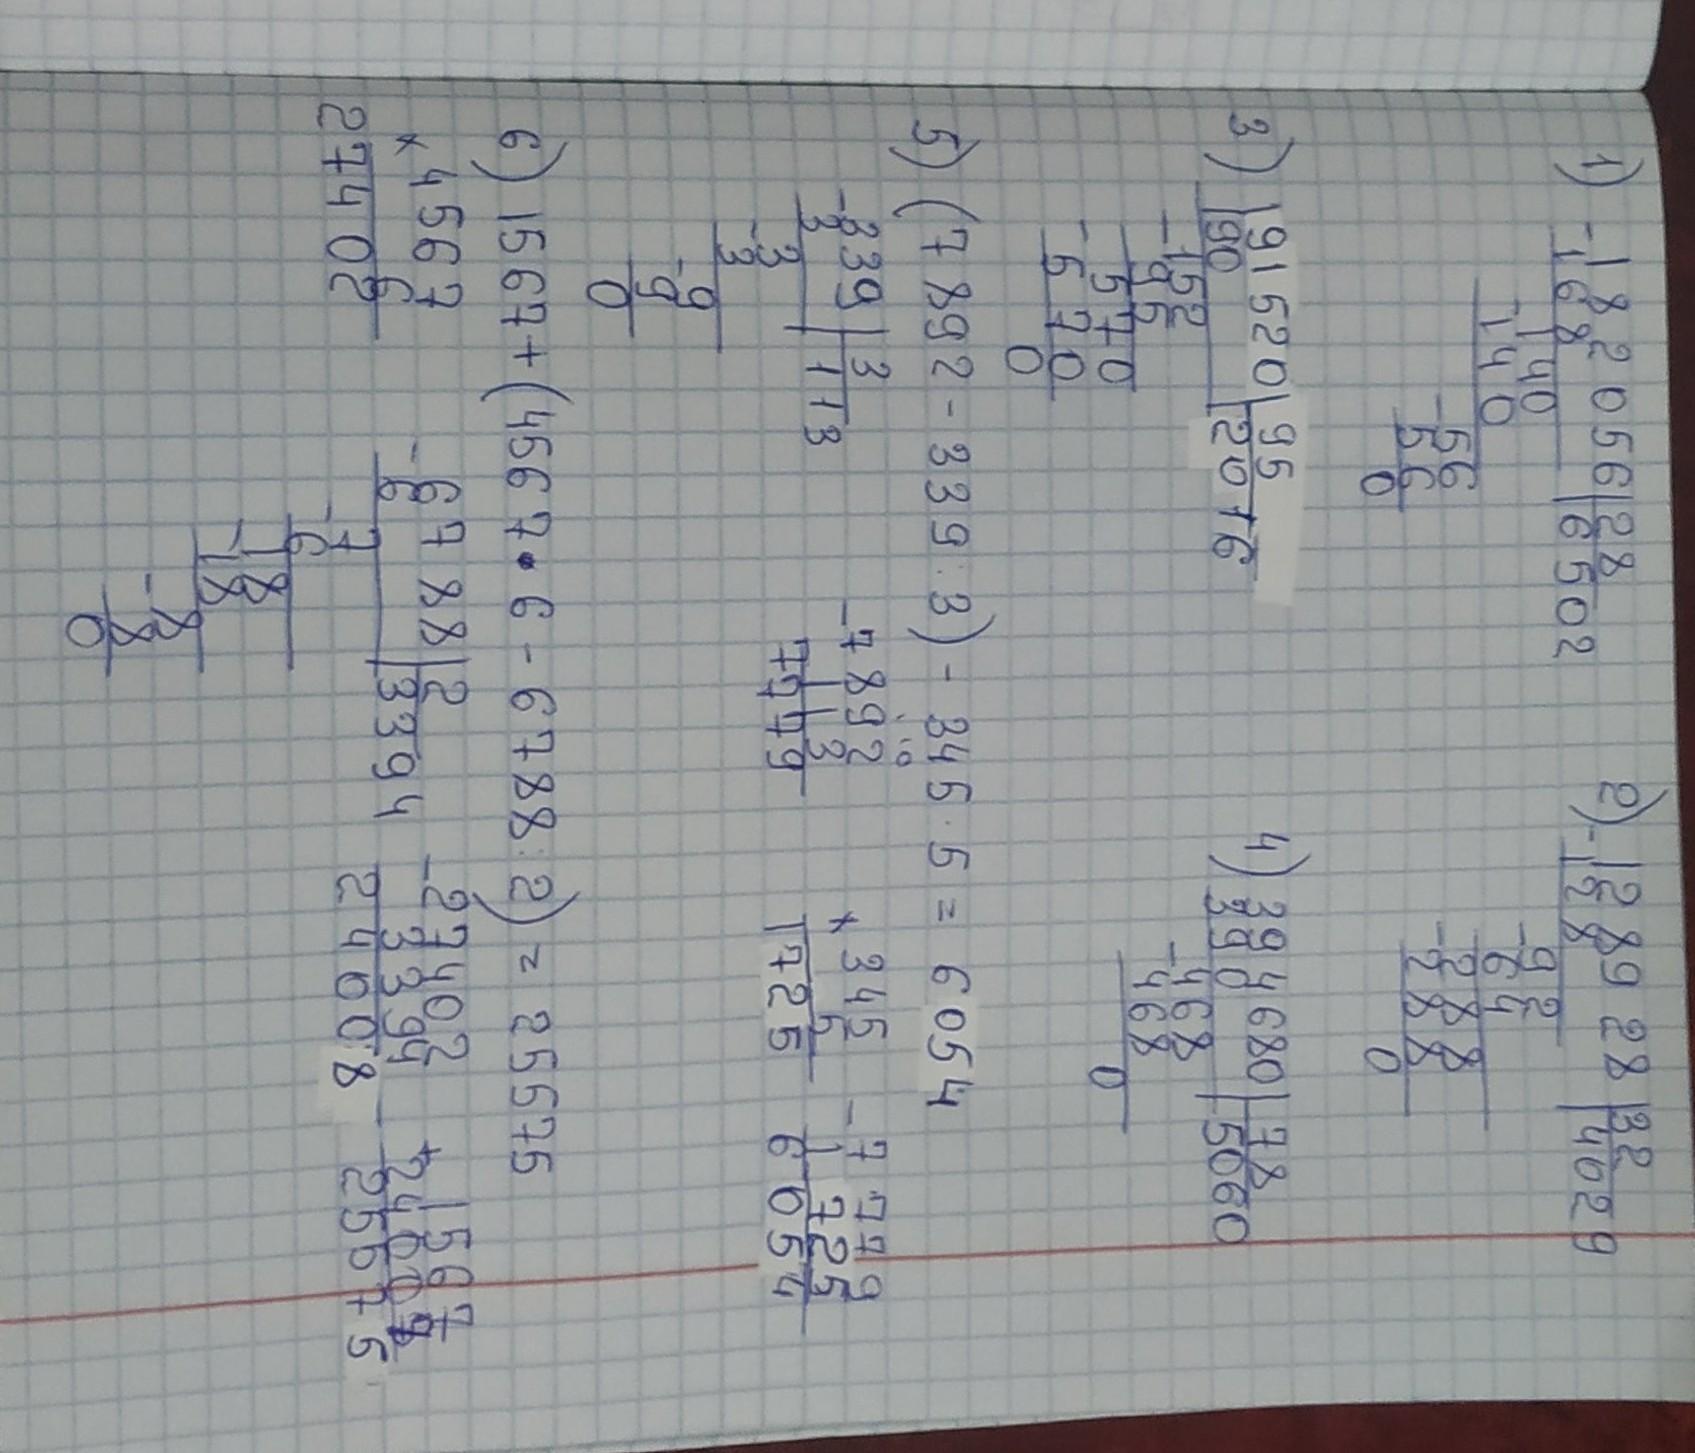 1) -182056|28
-168 |6502
140
140
-56
56
0
2) -128928|32
-128 |4029
-92
64
-288
-288
0
3) 191520|95
190 |2016
-152
-95
570
-570
0
4) 394680|78
390 |5060
-468
-468
0
5) (7892-339:3)-345·5=6054
-339|3
3 |113
3
-3
9
-9
0
-7892
113
7779
×345
5
1725
-7779
1725
6054
6) 1567+(4567·6-6788:2)=25575
×4567
6
27402
-6788|2
6 |3394
-7
6
18
-18
8
-8
0
-27402
3394
24008
+1567
24008
25575